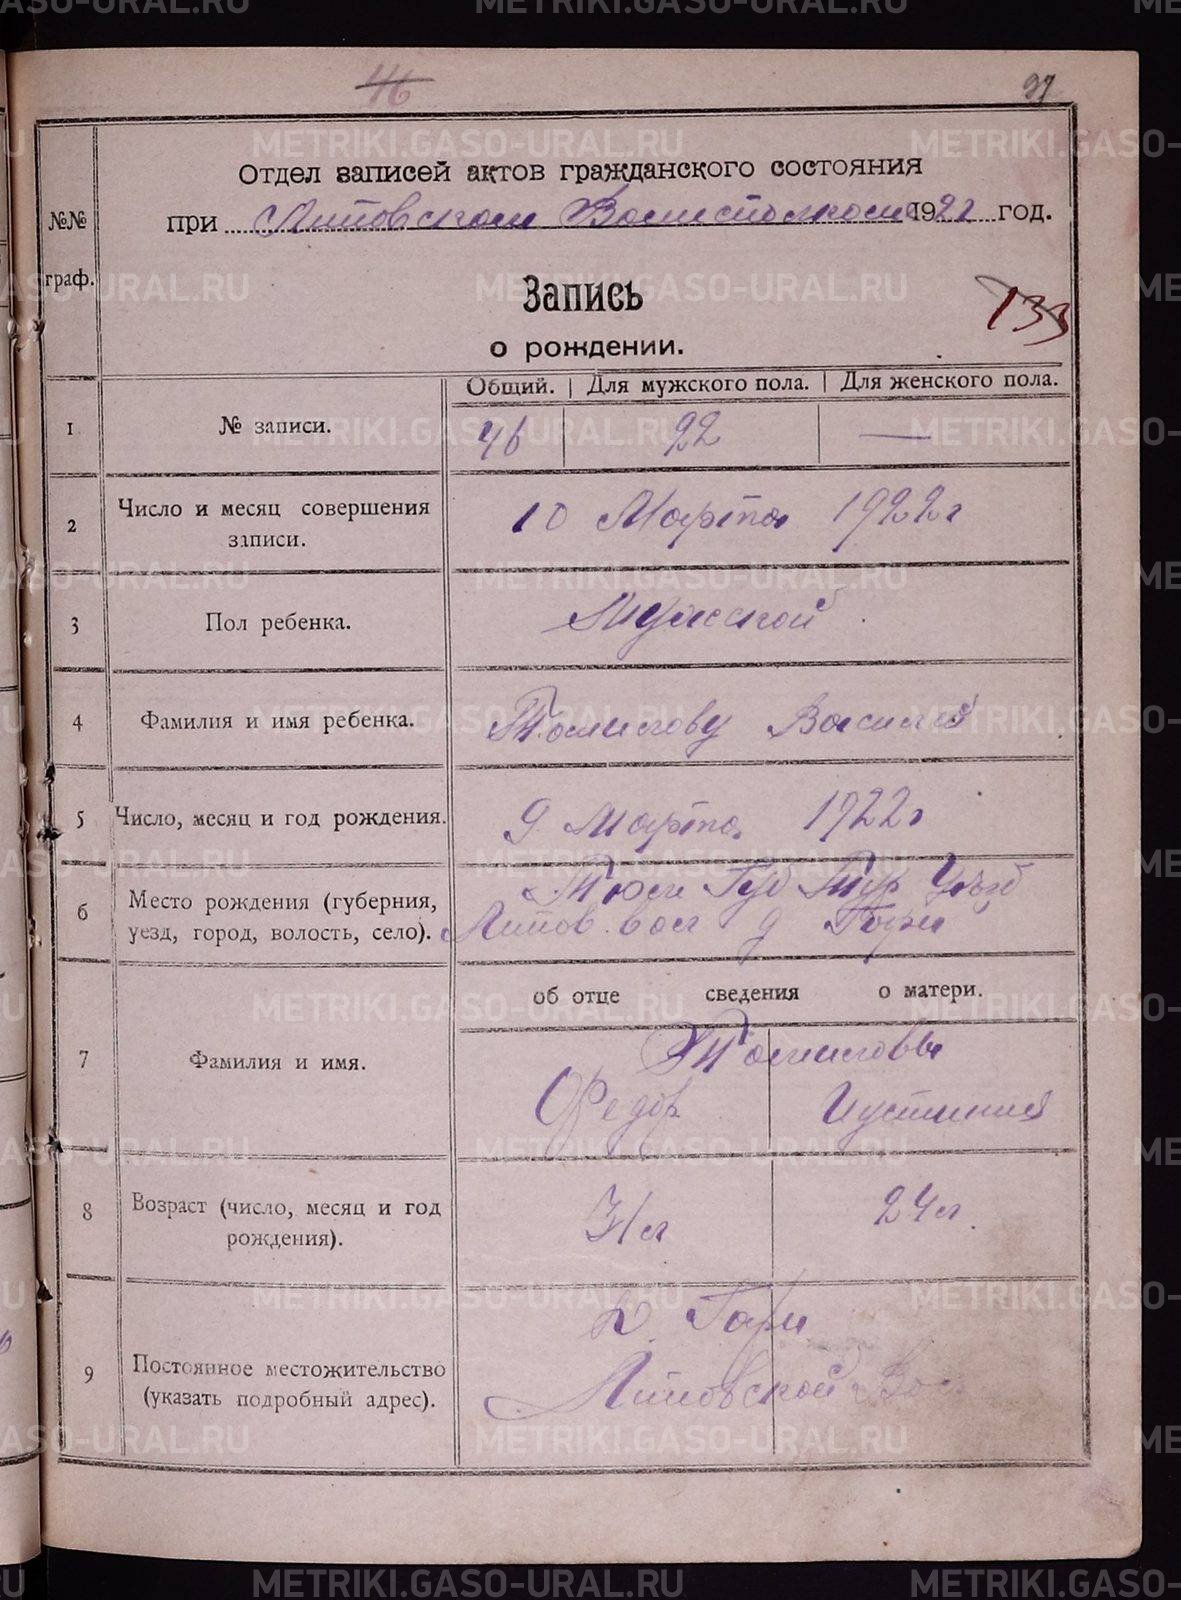 46
97
Отдел записей актов гражданского состояния
при Липовском Волисполкоме 1922 год.
№№
граф.
Запись
о рождении.
133
Общий. | Для мужского пола. | Для женского пола.
1 № записи. 46 22 —
2 Число и месяц совершения записи. 10 Марта 1922 г
3 Пол ребенка. Мужской
4 Фамилия и имя ребенка. Томилову Василий
5 Число, месяц и год рождения. 9 Марта 1922 г
6 Место рождения (губерния, Тюм Губ Тур Уезд
уезд, город, волость, село). Липов. вол д Гари
об отце сведения о матери.
7 Фамилия и имя. Томиловы
Федор Иустиния
8 Возраст (число, месяц и год рождения). 31 л 24 л.
9 Постоянное местожительство (указать подробный адрес). Д. Гари
Липовской Вол
METRIKI.GASO-URAL.RU